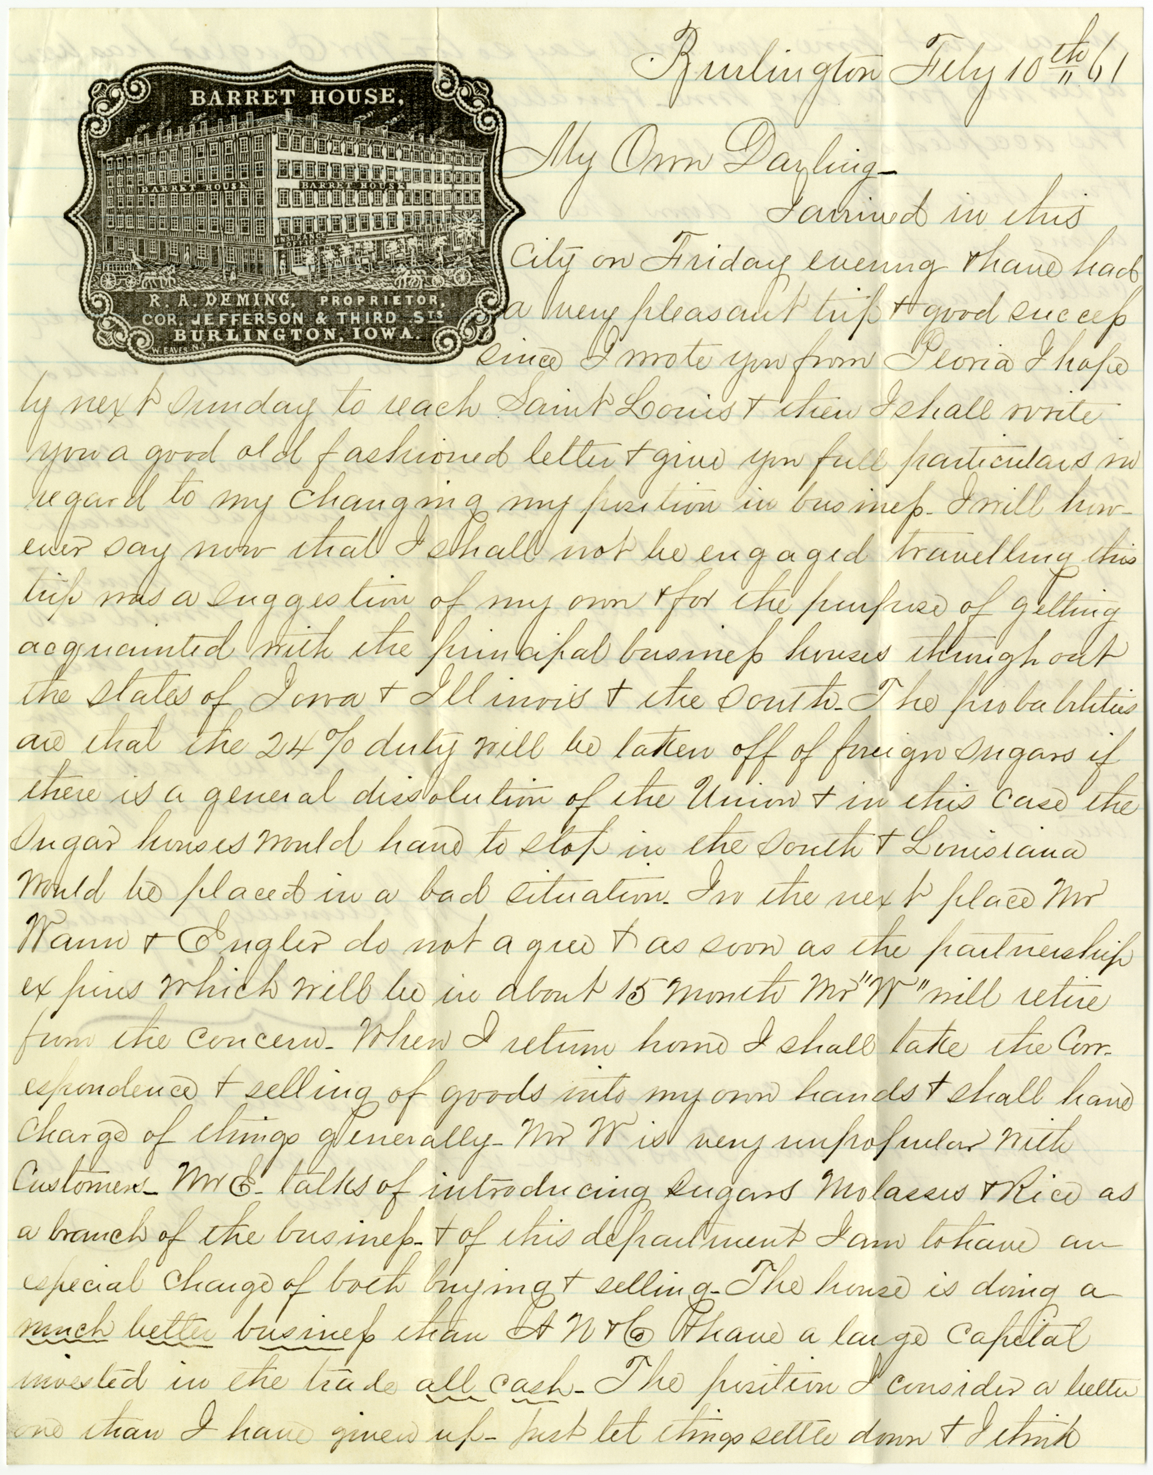 Burlington Feby 10th " 61
BARRET HOUSE,
BARRET HOUSE BARRET HOUSE
R. A. DEMING, PROPRIETOR,
COR. JEFFERSON & THIRD STS
BURLINGTON, IOWA.
My Own Darling_
I arrived in this
City on Friday evening & have had
a very pleasant trip & good success
since I wrote you from Peoria I hope
by next Sunday to reach Saint Louis & then I shall write
you a good old fashioned letter & give you full particulars in
regard to my changing my position in business. I will how-
ever say now that I shall not be engaged travelling this
trip was a suggestion of my own & for the purpose of getting
acquainted with the principal business houses throughout
the states of Iowa & Illinois & the South_ The probabilities
are that the 24% duty will be taken off of foreign sugars if
there is a general dissolution of the Union & in this case the
Sugar houses would have to stop in the South & Louisiana
would be placed in a bad situation. In the next place Mr
Wann & Engler do not agree & as soon as the partnership
expires which will be in about 15 month Mr "W" will retire
from the concern. When I return home I shall take the Corr-
espondence & selling of goods into my own hands & shall have
charge of things generally_ Mr W is very unpopular with
Customers_ Mr E. talks of introducing Sugars Molasses & Rice as
a branch of the business_ & of this department I am to have an
especial charge of both buying & selling_ The house is doing a
much better business than A N & Co & have a large Capital
invested in the trade all cash_ The position I consider a better
one than I have given up_ Just let things settle down & I think